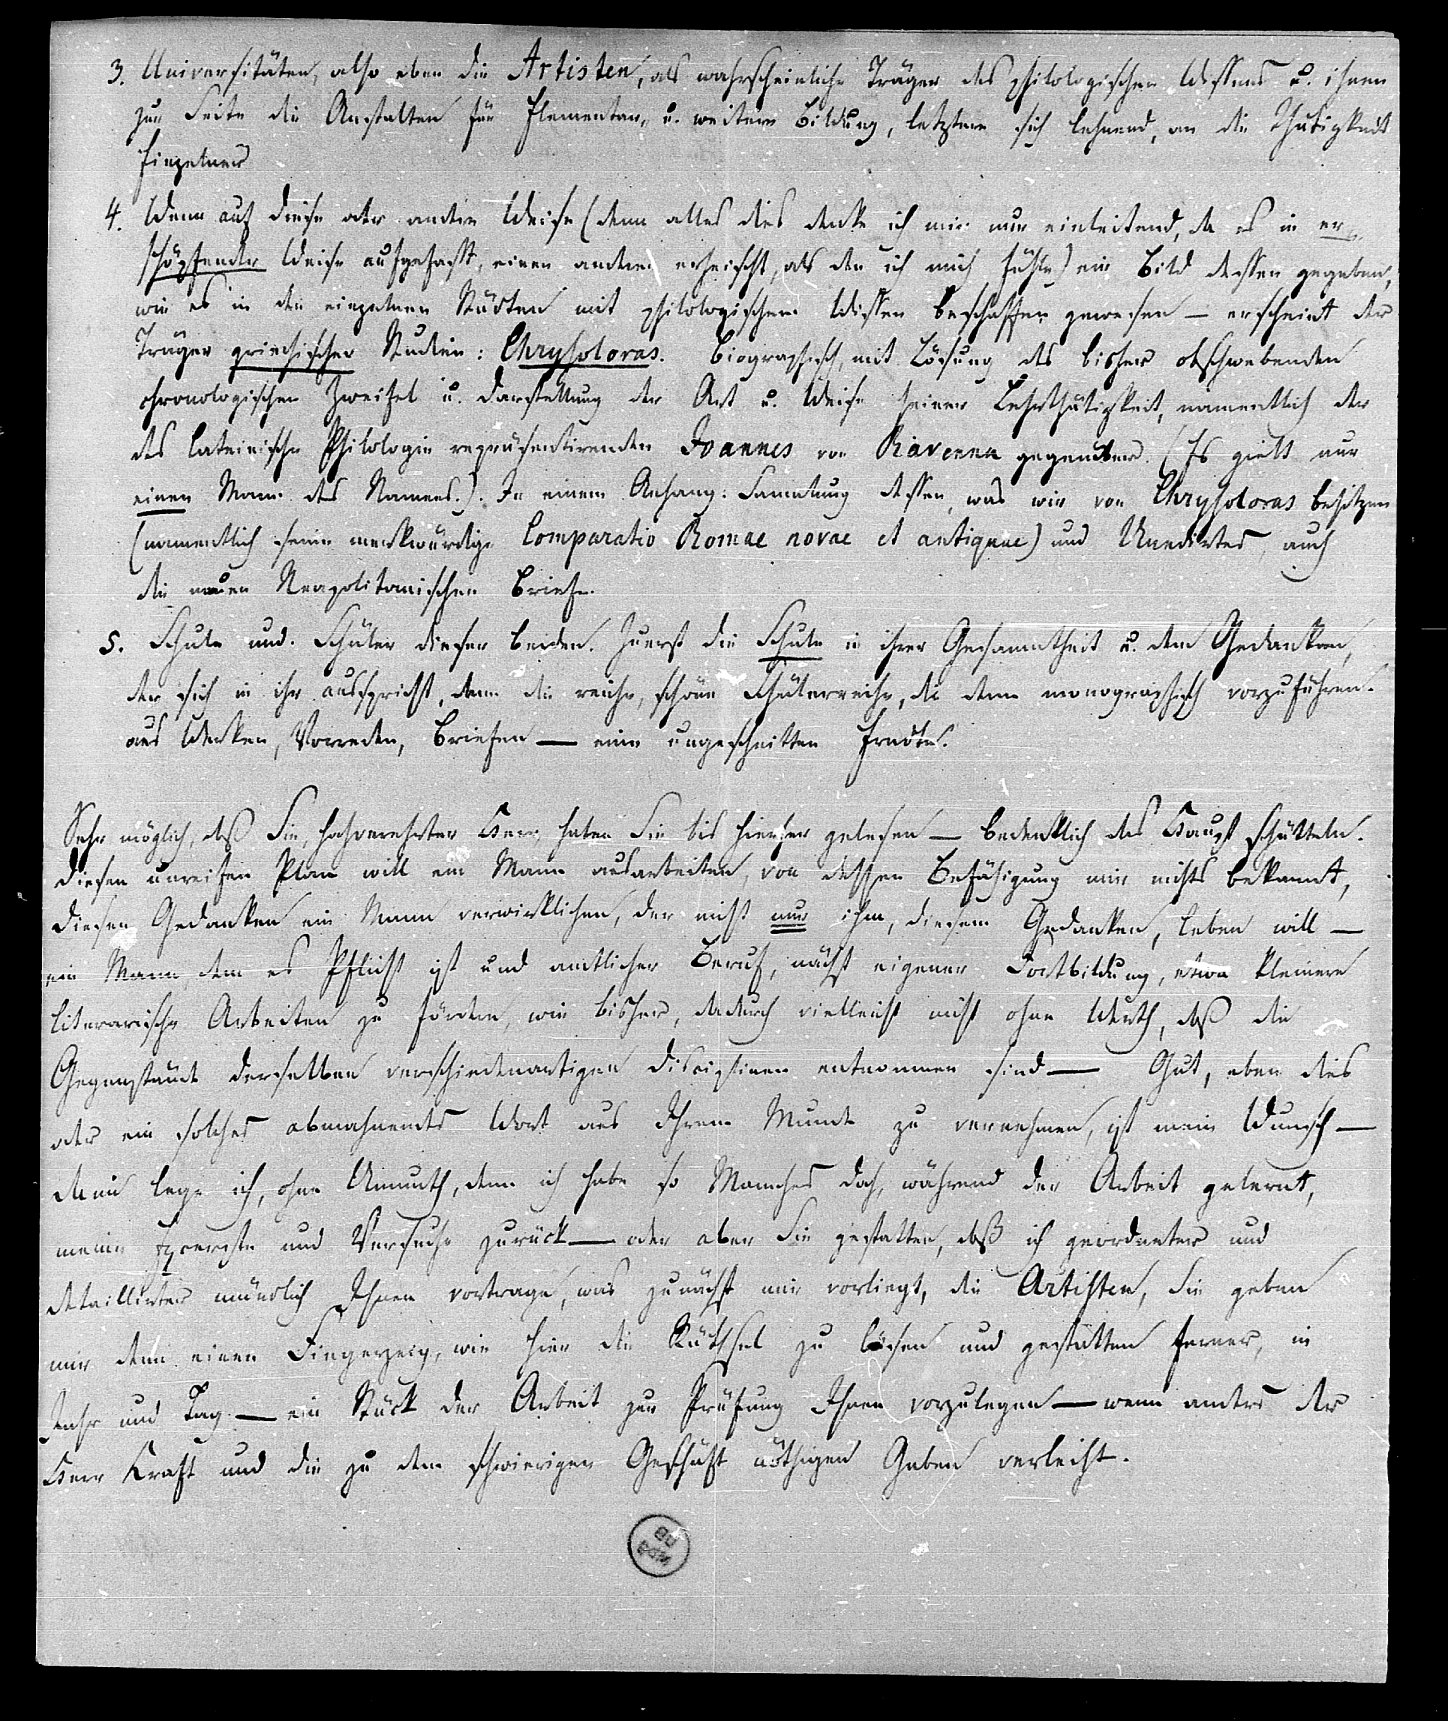 3. Universitäten, also eben die Artisten, als wahrscheinliche Träger des philologischen Wissens u. ihnen
zur Seite die Anstalten für Elementar- u. weitere Bildung, letztere sich lehnend, an die Thätigkeit
Einzelner
4. Wenn auf diese oder andere Weise (denn alles dies denke ich mir nur einleitend, da es in er-
schöpfender Weise aufgefaßt, einen andern erheischt, als den ich mich fühle) ein Bild dessen gegeben,
wie es in den einzelnen Städten mit philologischem Wissen beschaffen gewesen — erscheint der
Träger griechischer Studien: Chrysoloras. Biographisch, mit Lösung des bisher obschwebenden
chronologischen Zweifel u. Darstellung der Art u. Weise seiner Lehrthätigkeit, namentlich der
des lateinische Philologie repräsentirenden Joannes von Ravenna gegenüber. (Es gielt nur
einen Mann des Namens.). In einem Anhang: Sammlung dessen, was wir von Chrysoloras besitzen
(namentlich seine merkwürdige Comparatio Romae novae et antiquae) und Unedirtes, auch
die neuen Neapolitanischen Briefe.
5. Schule und Schüler dieser beiden. Zuerst die Schule in ihrer Gesammtheit u. dem Gedanken,
der sich in ihr ausspricht, dann die reiche, schöne Schülerreihe, die dann monographisch vorzuführen.
aus Werken, Vorreden, Briefen — eine ungeschnitten Erndte.
Sehr möglich, daß Sie, hochverehrter Herr, haben Sie bis hierher gelesen — bedenklich das Haupt schütteln.
Diesen unreifen Plan will ein Mann ausarbeiten, von dessen Befähigung mir nichts bekannt,
diesen Gedanken ein Mann verwirklichen, der nicht nur ihm, diesem Gedanken, leben will —
ein Mann, dem es Pflicht ist und amtlicher Beruf, nächst eigener Fortbildung, etwa kleinere
literarische Arbeiten zu fördern, wie bisher, dadurch vielleicht nicht ohne Werth, daß die
Gegenstände derselben verschiedenartigen Disciplinen entnommen sind — Gut, eben dies
oder ein solches abmahnendes Wort aus Ihrem Munde zu vernehmen, ist mein Wunsch —
dann lege ich, ohne Unmuth, denn ich habe so Manches doch, während der Arbeit gelernt,
meine Excerpte und Versuche zurück — oder aber Sie gestatten, daß ich geordneter und
detaillirter mündlich Ihnen vortrage, was zunächst mir vorliegt, die Artisten, Sie geben
mir dann einen Fingerzeig, wie hier die Räthsel zu lösen und gestatten ferner, in
Jahr und Tag — ein Stück der Arbeit zur Prüfung Ihnen vorzulegen — wenn anders der
Herr Kraft und die zu dem schwierigen Geschäft nöthigen Gaben verleiht.